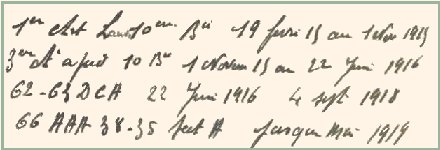 1er Art Lourd 10em Bie 19 fevri 15 au 1 Nov 1915
3em At a pied 10 Bie 1 Novem 15 au 22 Juin 1916
62-63 DCA 22 Juin 1916 4 sept 1918
66 AAA 38-35 Sect A jusque Mai 1919